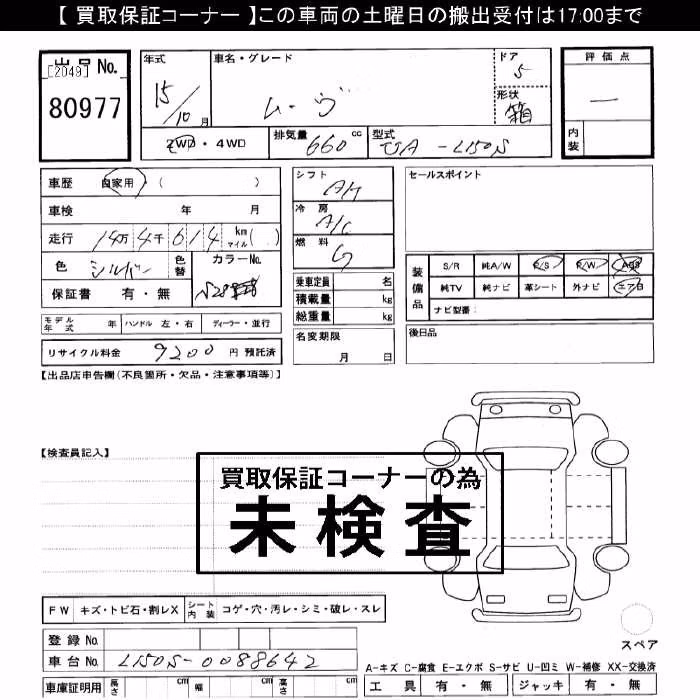 【 買取保証コーナー 】この車両の土曜日の搬出受付は17:00まで
出品 No.
[2049]
80977
年式
15/10月
車名・グレード
ムーヴ
ドア
5
形状
箱
評価点
内装
2WD・4WD
排気量 660 cc
型式
-L150S
車歴 自家用・( )
車検 年 月
走行 14万 4千 614 km マイル( )
色 シルバー 色替
カラーNo.
保証書 有・無
シフト
冷房
A/C
燃料
G
乗車定員 名
積載量 kg
総重量 kg
名変期限
月 日
セールスポイント
装備品
S/R 純A/W P/S P/W
純TV 純ナビ 革シート 外ナビ エアB
ナビ型番:
後日品
モデル年式 年 ハンドル 左・右 ディーラー・並行
リサイクル料金 9200 円 預託済
【出品店申告欄(不良箇所・欠品・注意事項等)】
【検査員記入】
買取保証コーナーの為
未検査
FW キズ・トビ石・割レX シート内装 コゲ・穴・汚レ・シミ・破レ・スレ
スペア
登録 No.
車台 No. L150S-0088642
A-キズ C-腐食 E-エクボ S-サビ U-凹ミ W-補修 XX-交換済
車庫証明用 長さ cm 幅 cm 高さ cm
工具 有・無 ジャッキ 有・無